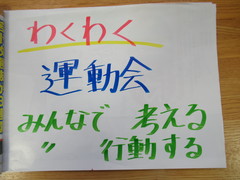 わくわく
運動会
みんなで 考える
〃 行動する